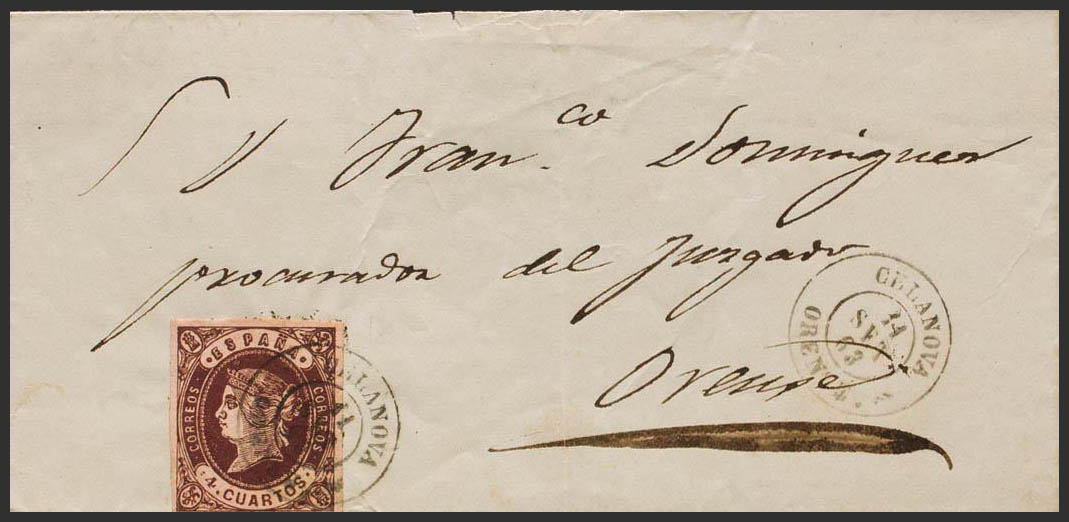 S D Fran.co Dominguez
procurador del Juzgado
Orense
CELANOVA
14
SET
63
ORENSE
ESPAÑA
CORREOS
CORREOS
4 CUARTOS
CELANOVA
14